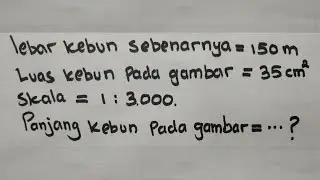 lebar kebun sebenarnya = 150 m
Luas kebun pada gambar = 35 cm²
Skala = 1 : 3.000.
Panjang kebun pada gambar = ... ?